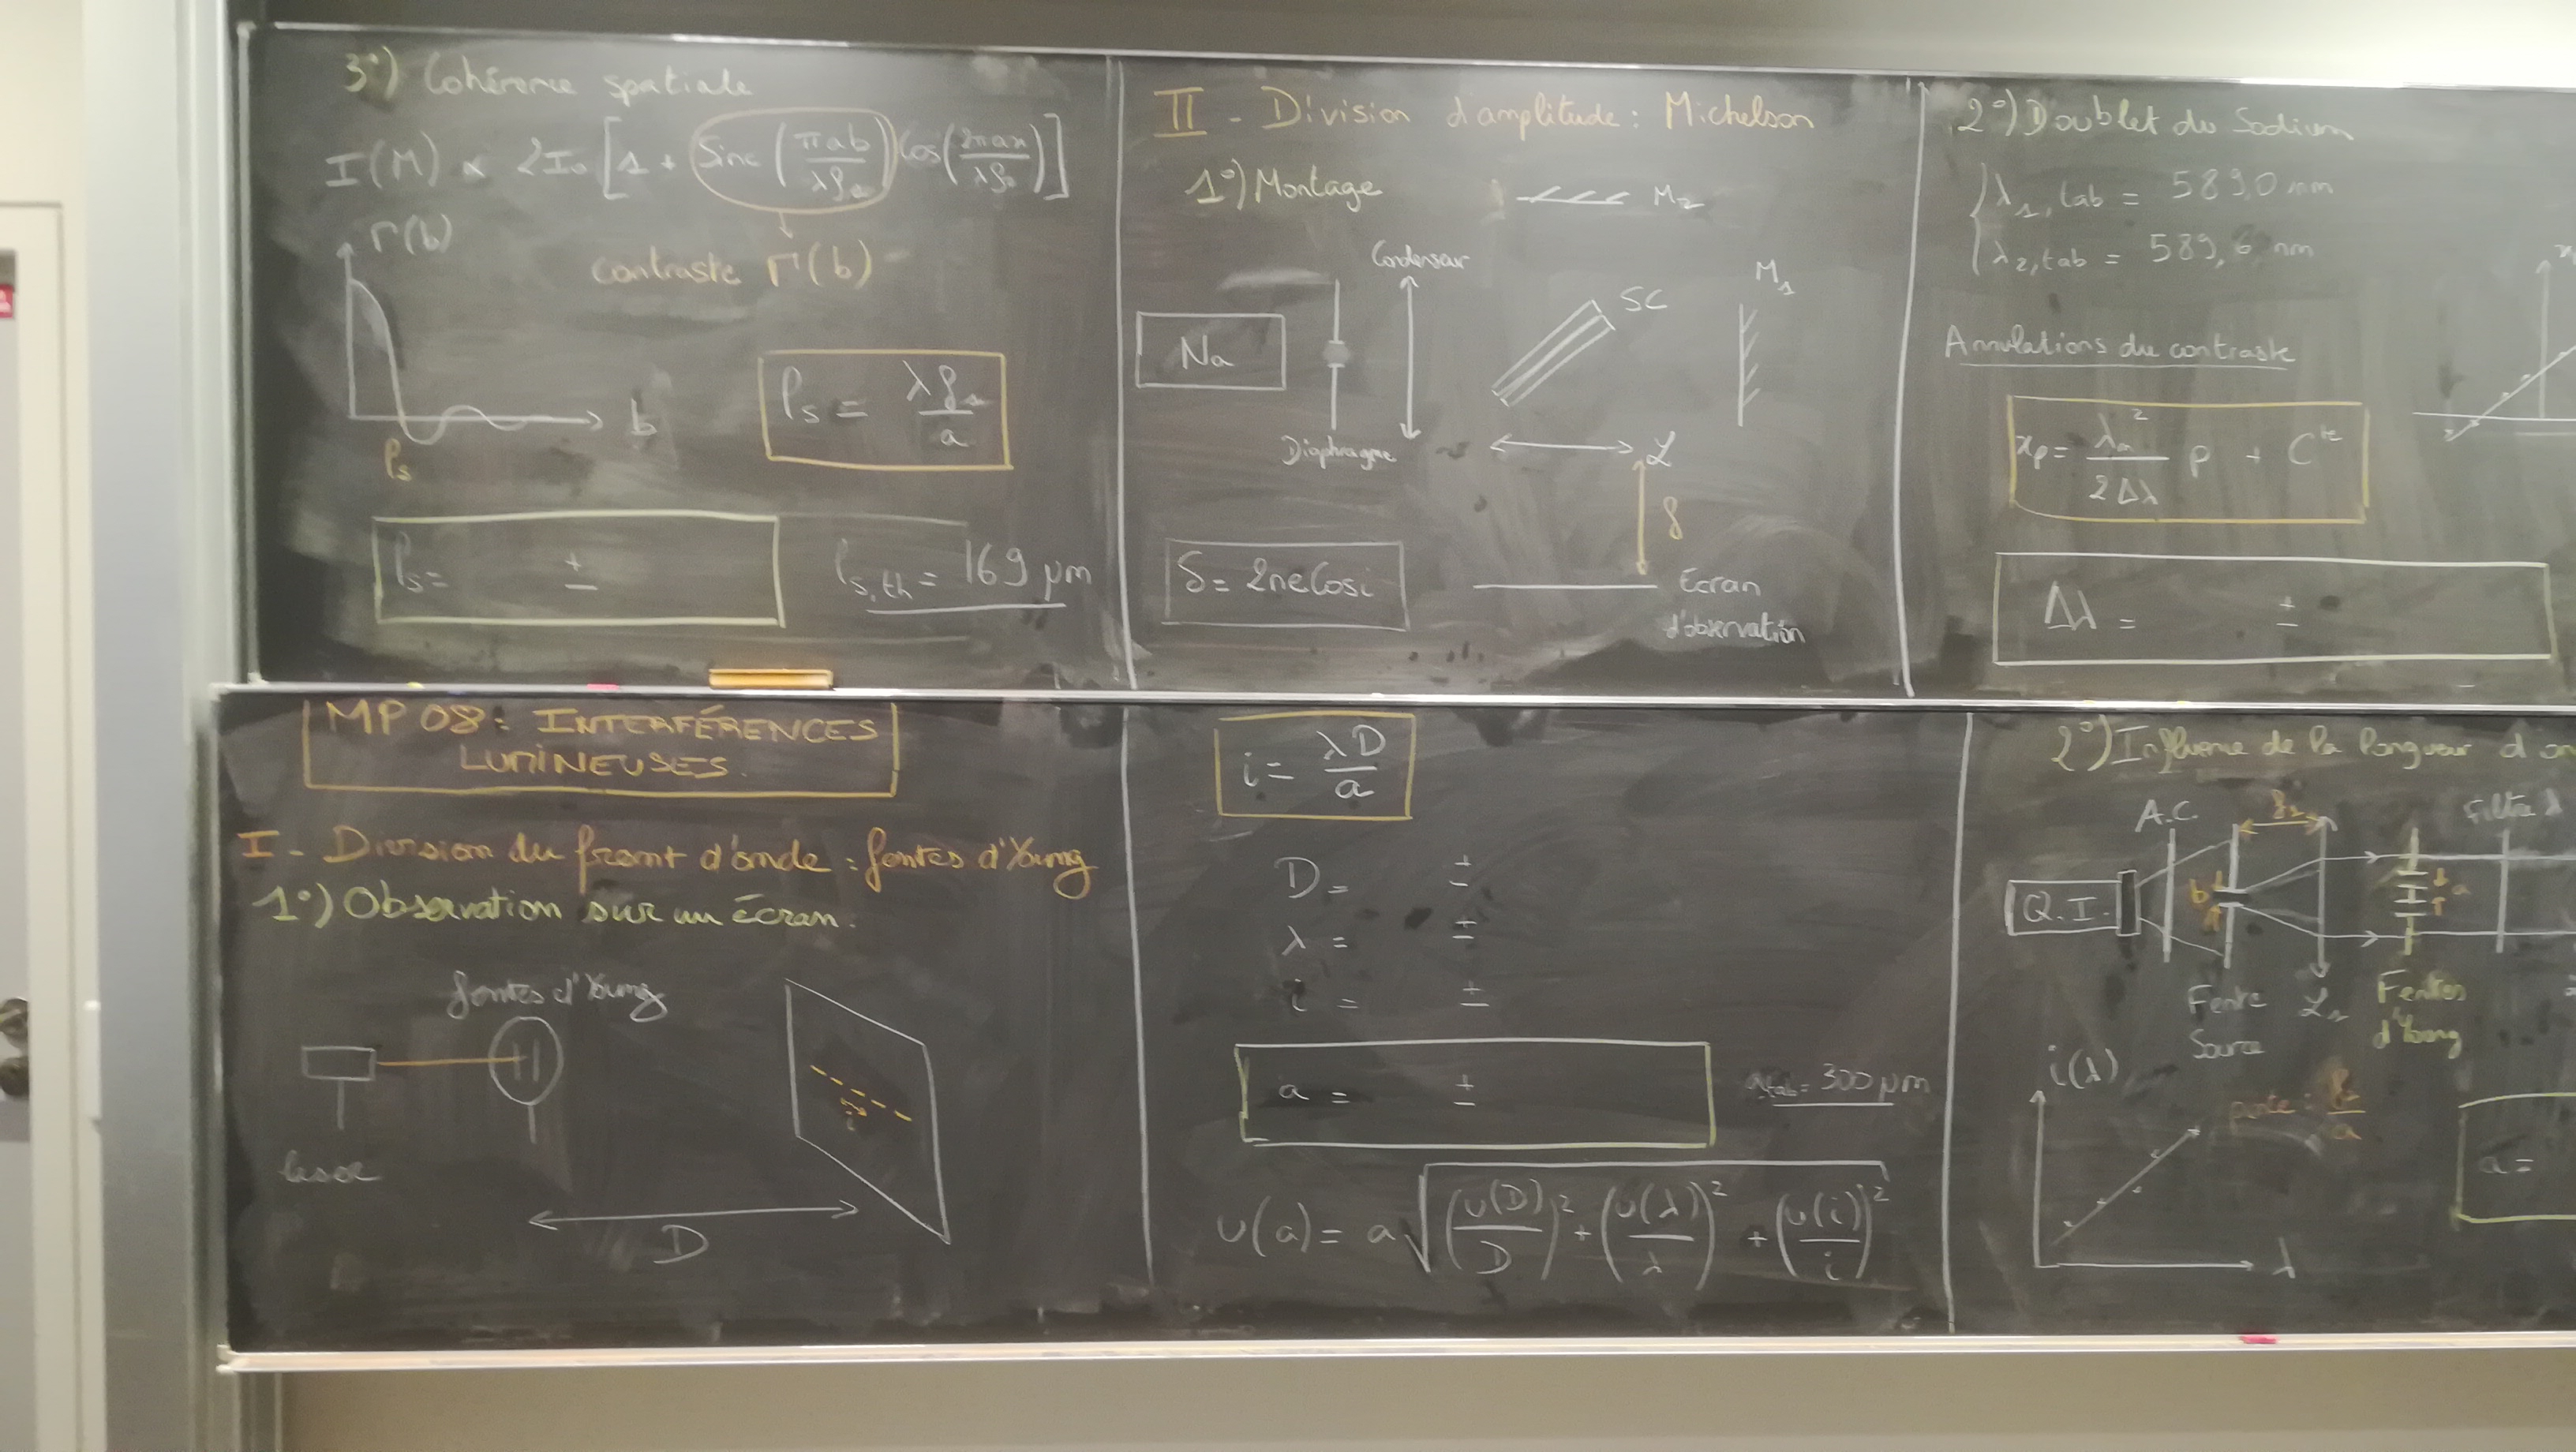 3°) Cohérence spatiale
I(M) ∝ 2I₀ [1 + Sinc (πab/λf₁) Cos(2πax/λf₂)]
Γ(b)
contraste Γ(b)
b
ls
ls = λf₁/a
ls = ±
ls,th = 169 µm
II - Division d'amplitude : Michelson
1°) Montage
M₂
Condenseur
M₁
SC
Na
Diaphragme
L
f
δ = 2neCosi
Ecran
d'observation
2°) Doublet du Sodium
λ₁,tab = 589,0 nm
λ₂,tab = 589,6 nm
Annulations du contraste
xp = λm²/2Δλ p + Cte
Δλ = ±
MP08 : INTERFÉRENCES
LUMINEUSES.
I - Division du front d'onde : fentes d'Young
1°) Observation sur un écran.
fentes d'Young
i
laser
D
i = λD/a
D = ±
λ = ±
i = ±
a = ±
atab = 300 µm
u(a) = a√((u(D)/D)² + (u(λ)/λ)² + (u(i)/i)²)
2°) Influence de la longueur d'on
A.C.
f₁
Filtre λ
Q.I.
b
a
Fente
Source
L₁
Fentes
d'Young
i(λ)
pente : f₂/a
λ
a =